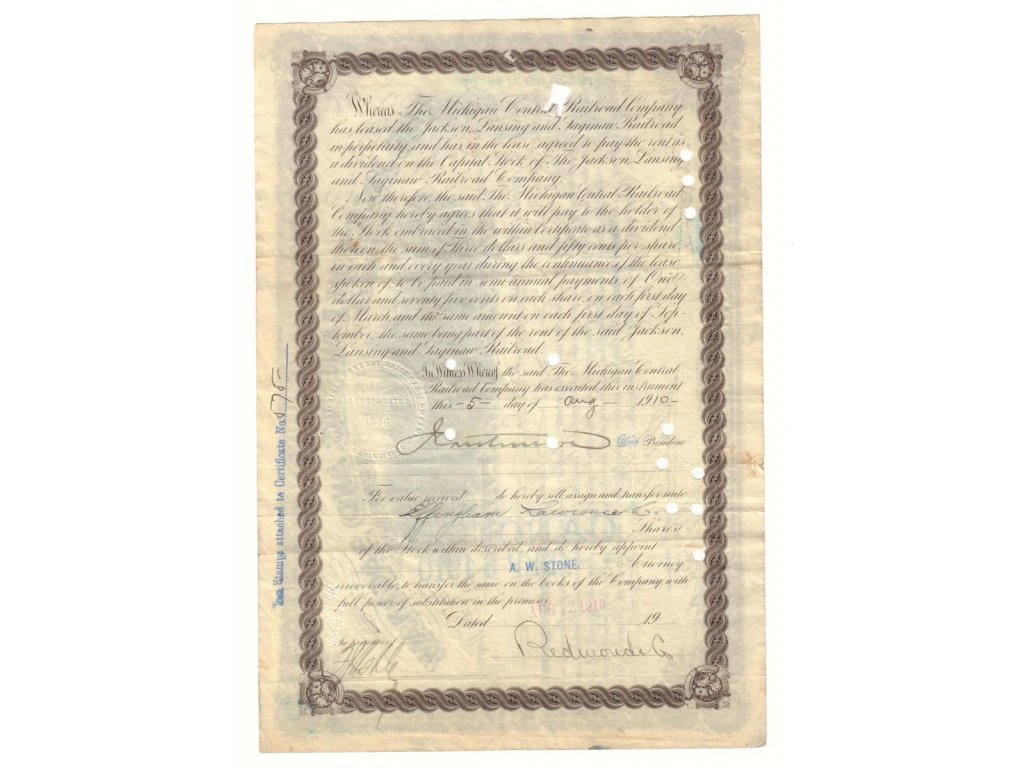 Whereas The Michigan Central Railroad Company
has leased the Jackson, Lansing and Saginaw Railroad
in perpetuity, and has in the lease agreed to pay the rent as
a dividend on the Capital Stock of The Jackson, Lansing
and Saginaw Railroad Company.
Now therefore, the said The Michigan Central Railroad
Company hereby agrees that it will pay to the holder of
the Stock embraced in the within Certificate as a dividend
thereon, the sum of Three dollars and fifty cents per share
in each and every year during the continuance of the lease
spoken of, to be paid in semi-annual payments of One
dollar and seventy five cents on each share, on each first day
of March, and the same amount on each first day of Sep-
tember, the same being part of the rent of the said Jackson,
Lansing and Saginaw Railroad.
In Witness Whereof the said The Michigan Central
Railroad Company has executed this instrument
this -5- day of Aug 1910-
Vice President
INCORPORATED
1846
For value received do hereby sell, assign and transfer unto
Effingham Lawrence & Co.
Shares
of the Stock within described, and do hereby appoint
A. W. STONE, Attorney
irrevocable, to transfer the same on the books of the Company, with
full power of substitution in the premises.
AUG 12 1910
Dated 19
In presence of
Redmond & Co
Tax Stamps attached to Certificate No.